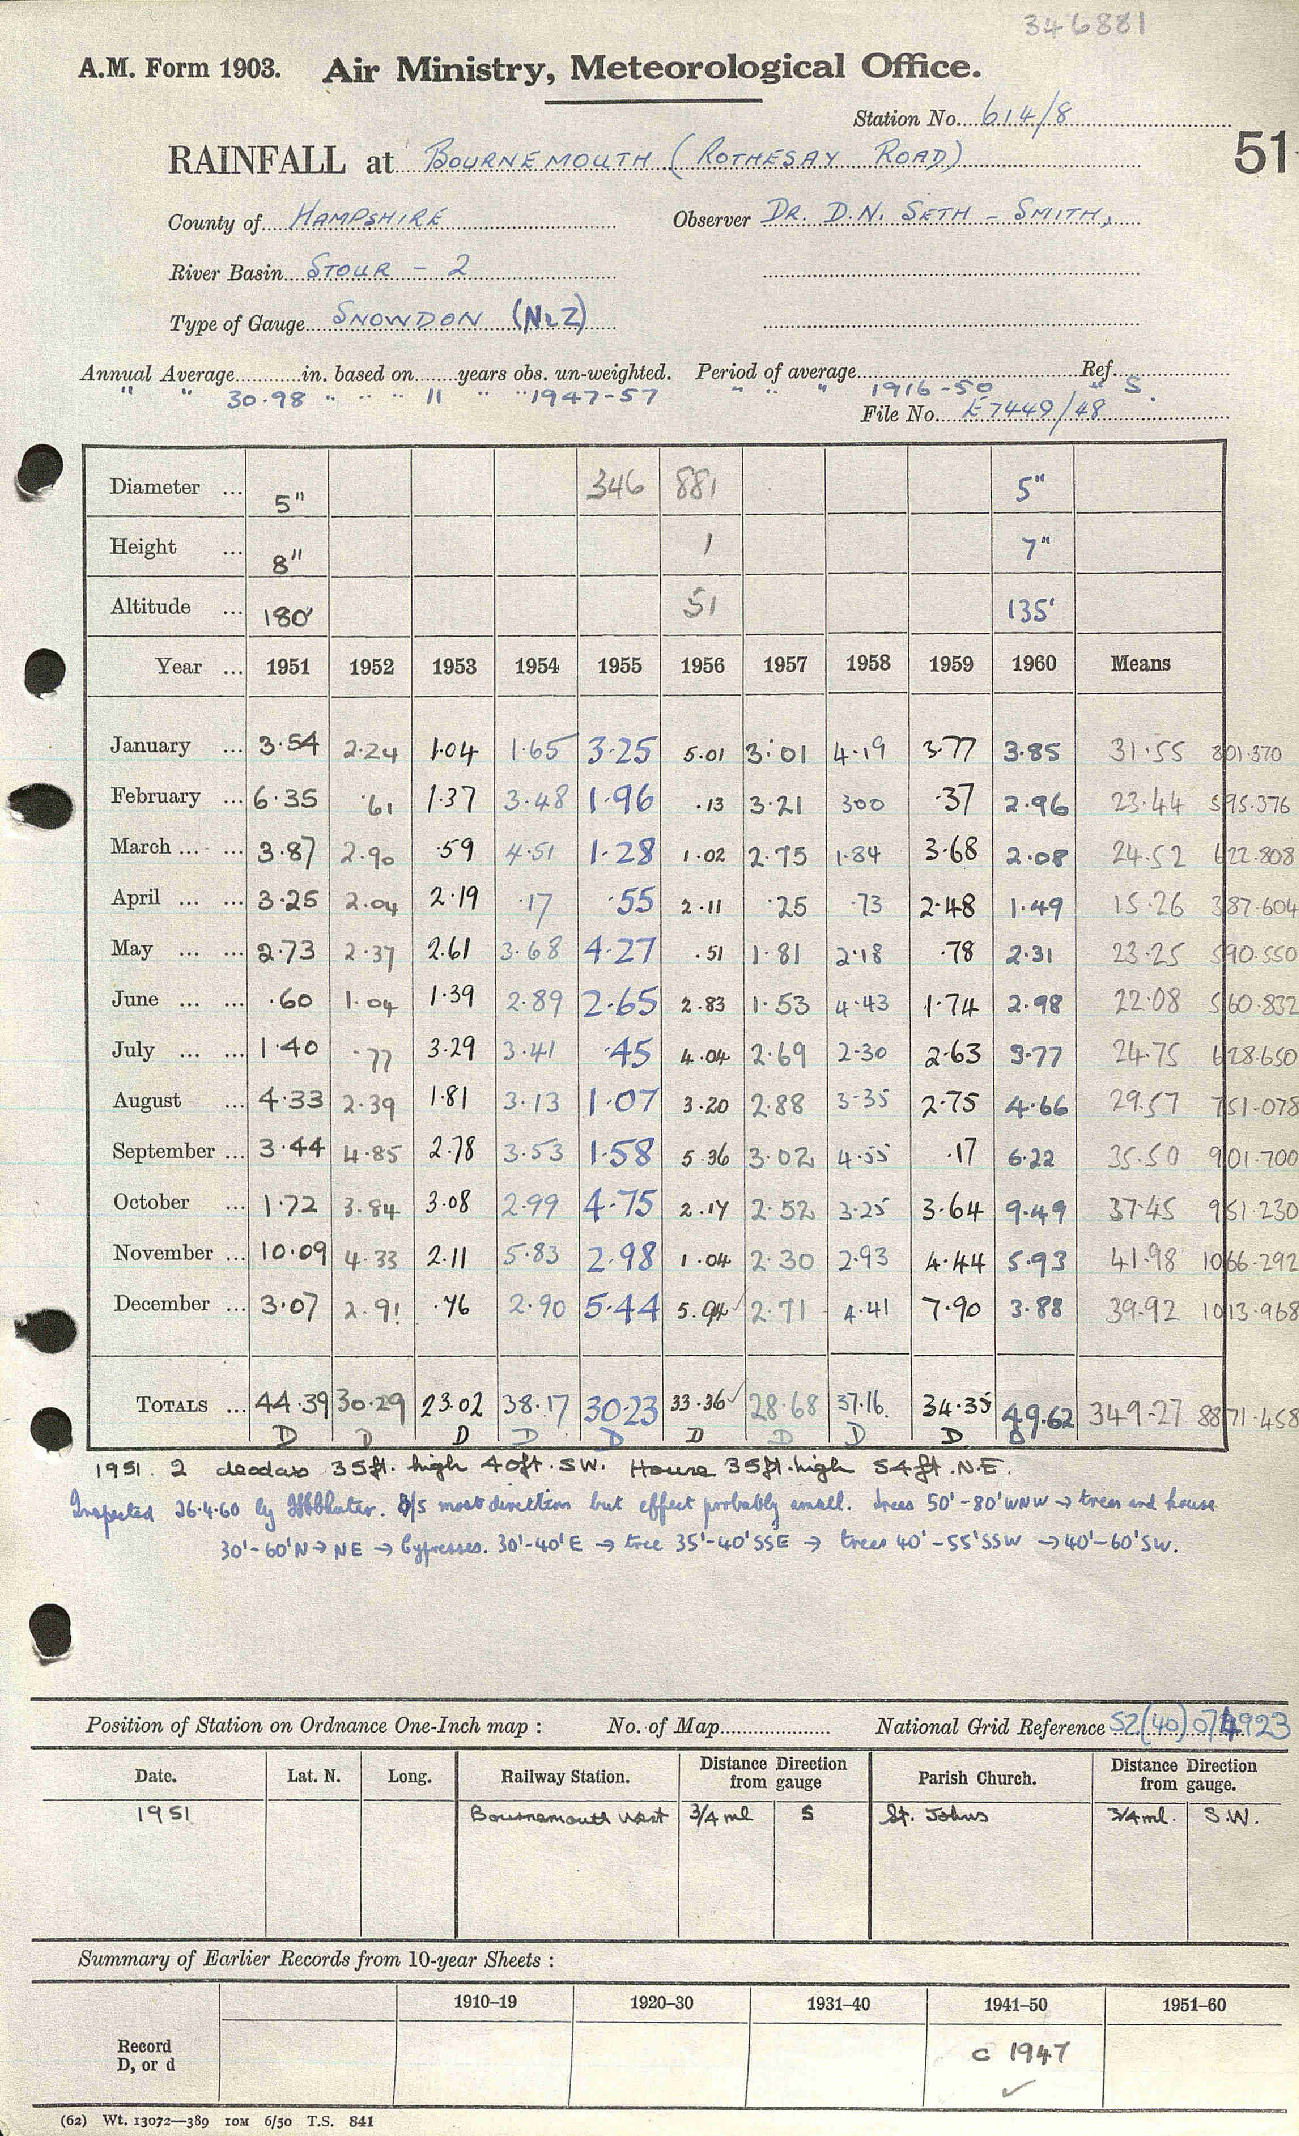 346881
A.M. Form 1903. Air Ministry, Meteorological Office.
Station No. 614/8
RAINFALL at BOURNEMOUTH (ROTHESAY ROAD) 51
County of HAMPSHIRE Observer DR. D.N. SETH-SMITH,
River Basin STOUR - 2
Type of Gauge SNOWDON
Annual Average............in. based on.......years obs. un-weighted. Period of average Ref.
" " 30.98 " " " 11 " " 1947-57 " " " 1916-50 " S.
File No. E7449/48
Diameter ... 5" 346 881 5"
Height ... 8" 1 7"
Altitude ... 180' 51 135'
Year ... 1951 1952 1953 1954 1955 1956 1957 1958 1959 1960 Means
January ... 3.54 2.24 1.04 1.65 3.25 5.01 3.01 4.19 3.77 3.85 31.55 801.370
February ... 6.35 .61 1.37 3.48 1.96 .13 3.21 300 .37 2.96 23.44 595.376
March ... ... 3.87 2.90 .59 4.51 1.28 1.02 2.75 1.84 3.68 2.08 24.52 622.808
April ... ... 3.25 2.04 2.19 .17 .55 2.11 .25 .73 2.48 1.49 15.26 387.604
May ... ... 2.73 2.37 2.61 3.68 4.27 .51 1.81 2.18 .78 2.31 23.25 590.550
June ... ... .60 1.04 1.39 2.89 2.65 2.83 1.53 4.43 1.74 2.98 22.08 560.832
July ... ... 1.40 .77 3.29 3.41 .45 4.04 2.69 2.30 2.63 3.77 24.75 628.650
August ... 4.33 2.39 1.81 3.13 1.07 3.20 2.88 3.35 2.75 4.66 29.57 751.078
September ... 3.44 4.85 2.78 3.53 1.58 5.36 3.02 4.55 .17 6.22 35.50 901.700
October ... 1.72 3.84 3.08 2.99 4.75 2.17 2.52 3.25 3.64 9.49 37.45 951.230
November ... 10.09 4.33 2.11 5.83 2.98 1.04 2.30 2.93 4.44 5.93 41.98 1066.292
December ... 3.07 2.91 .76 2.90 5.44 5.94 2.71 4.41 7.90 3.88 39.92 1013.968
TOTALS ... 44.39 30.29 23.02 38.17 30.23 33.36 28.68 37.16 34.35 49.62 349.27 8871.458
D D D D D D D D D D
1951. 2 deodars 35ft. high 40ft. SW. House 35ft. high 54ft. N.E.
Inspected 26.4.60 by O/S most direction but effect probably small. Trees 50'-80' WNW → trees and house
30'-60' N → NE → Cypresses. 30'-40' E → tree 35'-40' SSE → trees 40'-55' SSW → 40'-60' SW.
Position of Station on Ordnance One-Inch map : No. of Map National Grid Reference SZ(40)074923
Date. Lat. N. Long. Railway Station. Distance Direction from gauge Parish Church. Distance Direction from gauge.
1951 Bournemouth West 3/4 ml S St. Johns 3/4 ml. S.W.
Summary of Earlier Records from 10-year Sheets :
1910–19 1920–30 1931–40 1941–50 1951–60
Record D, or d c 1947 ✓
(62) Wt. 13072—389 10M 6/50 T.S. 841